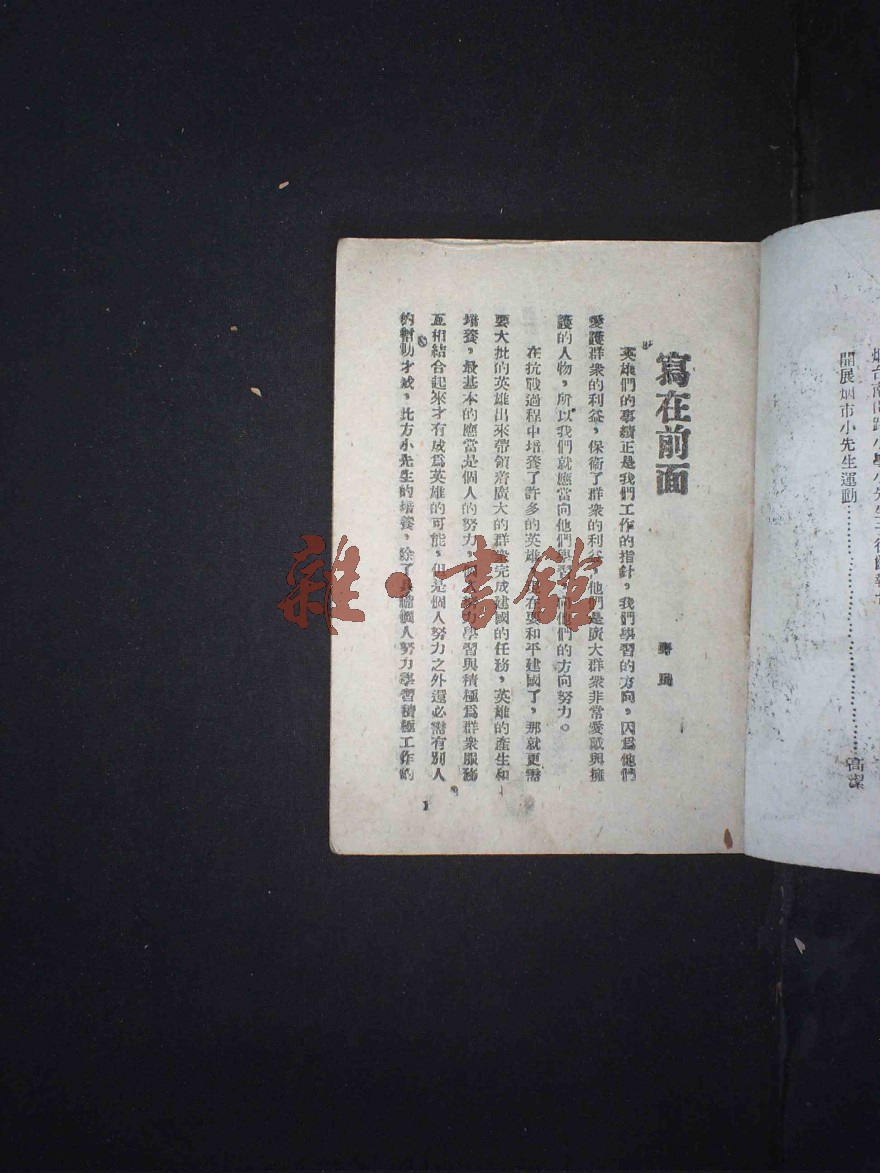 開展烟市小先生運動……………………高潔
寫在前面
英雄們的事績正是我們工作的指針,我們學習的方向,因爲他們
愛護群衆的利益,保衛了群衆的利益,他們是廣大群衆非常愛戴與擁
護的人物,所以我們就應當向他們學習,向他們的方向努力。
在抗戰過程中培養了許多的英雄,現在要和平建國了,那就更需
要大批的英雄出來帶領着廣大的群衆完成建國的任務,英雄的產生和
培養,最基本的應當是個人的努力,個人努力學習與積極爲群衆服務
互相結合起來才有成爲英雄的可能,但是個人努力之外還必需有別人
的幫助才成,比方小先生的培養,除了具備個人努力學習積極工作的
1
雜·書館